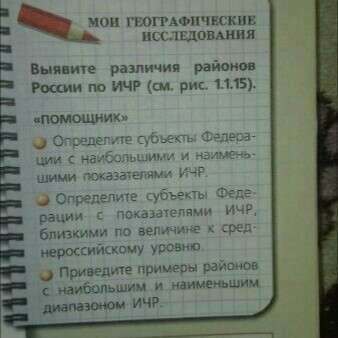 МОИ ГЕОГРАФИЧЕСКИЕ
ИССЛЕДОВАНИЯ
Выявите различия районов
России по ИЧР (см. рис. 1.1.15).
«ПОМОЩНИК»
Определите субъекты Федера-
ции с наибольшими и наимень-
шими показателями ИЧР.
Определите субъекты Феде-
рации с показателями ИЧР,
близкими по величине к сред-
нероссийскому уровню.
Приведите примеры районов
с наибольшим и наименьшим
диапазоном ИЧР.